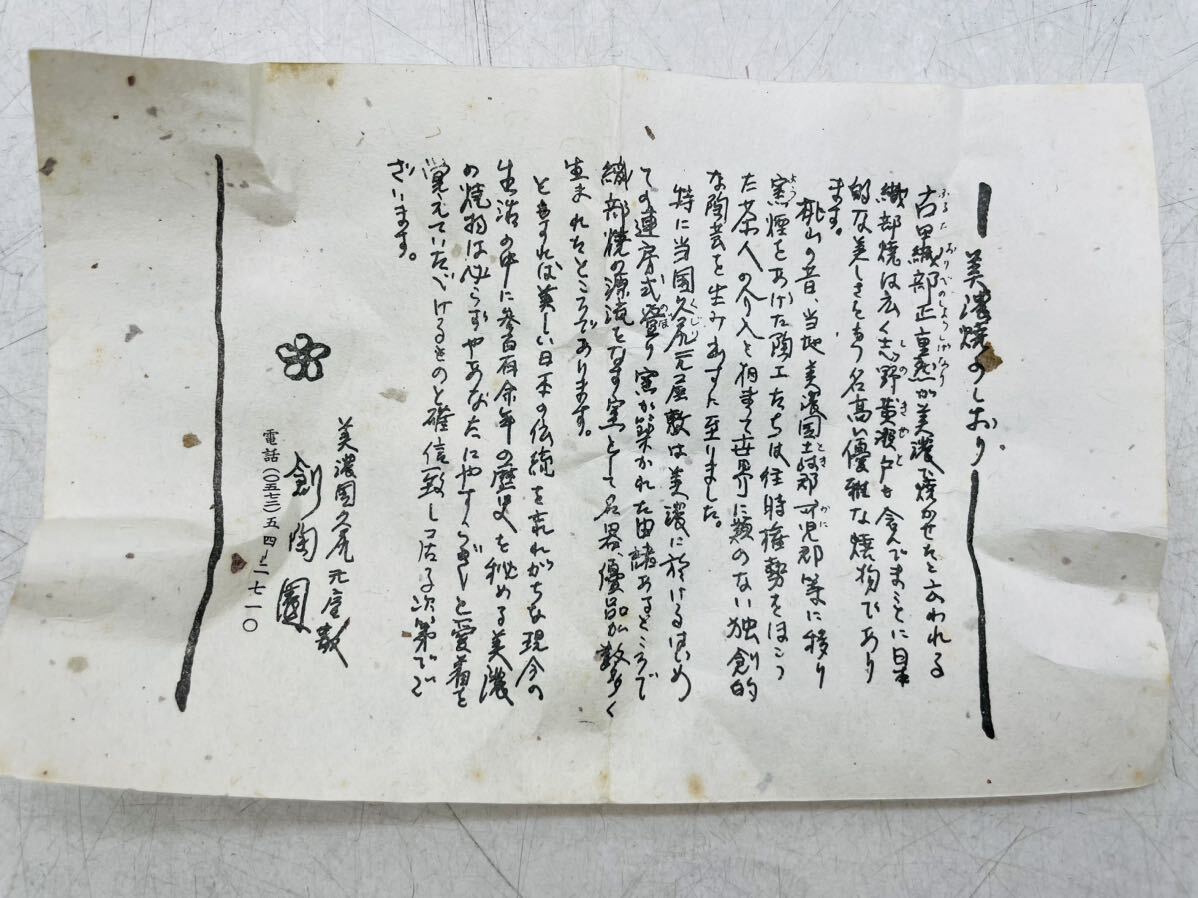 美濃焼のしおり
古田織部正重然が美濃で焼かせたと云われる
織部焼は広く志野黄瀬戸も含んでまことに日本
的な美しさをもつ名高い優雅な焼物であり
ます。
桃山の昔、当地美濃国土岐郡可児郡等に移り
窯煙をあげた陶工たちは往時権勢をほこっ
た茶人の介入と相まって世界に類のない独創的
な陶芸を生み出すに至りました。
特に当国久尻元屋敷は美濃に於けるはじめ
ての連房式登り窯が築かれた由緒あるところで
織部焼の源流をなす窯として名器、優品が数多く
生まれたところであります。
ともすれば美しい日本の伝統を忘れがちな現今の
生活の中に参百有余年の歴史を秘める美濃
の焼物は必らずやあなたにやすらぎと愛着を
覚えていただけるものと確信致して居る次第でご
ざいます。
美濃国久尻元屋敷
創陶園
電話(〇五七三)五四-二七一〇